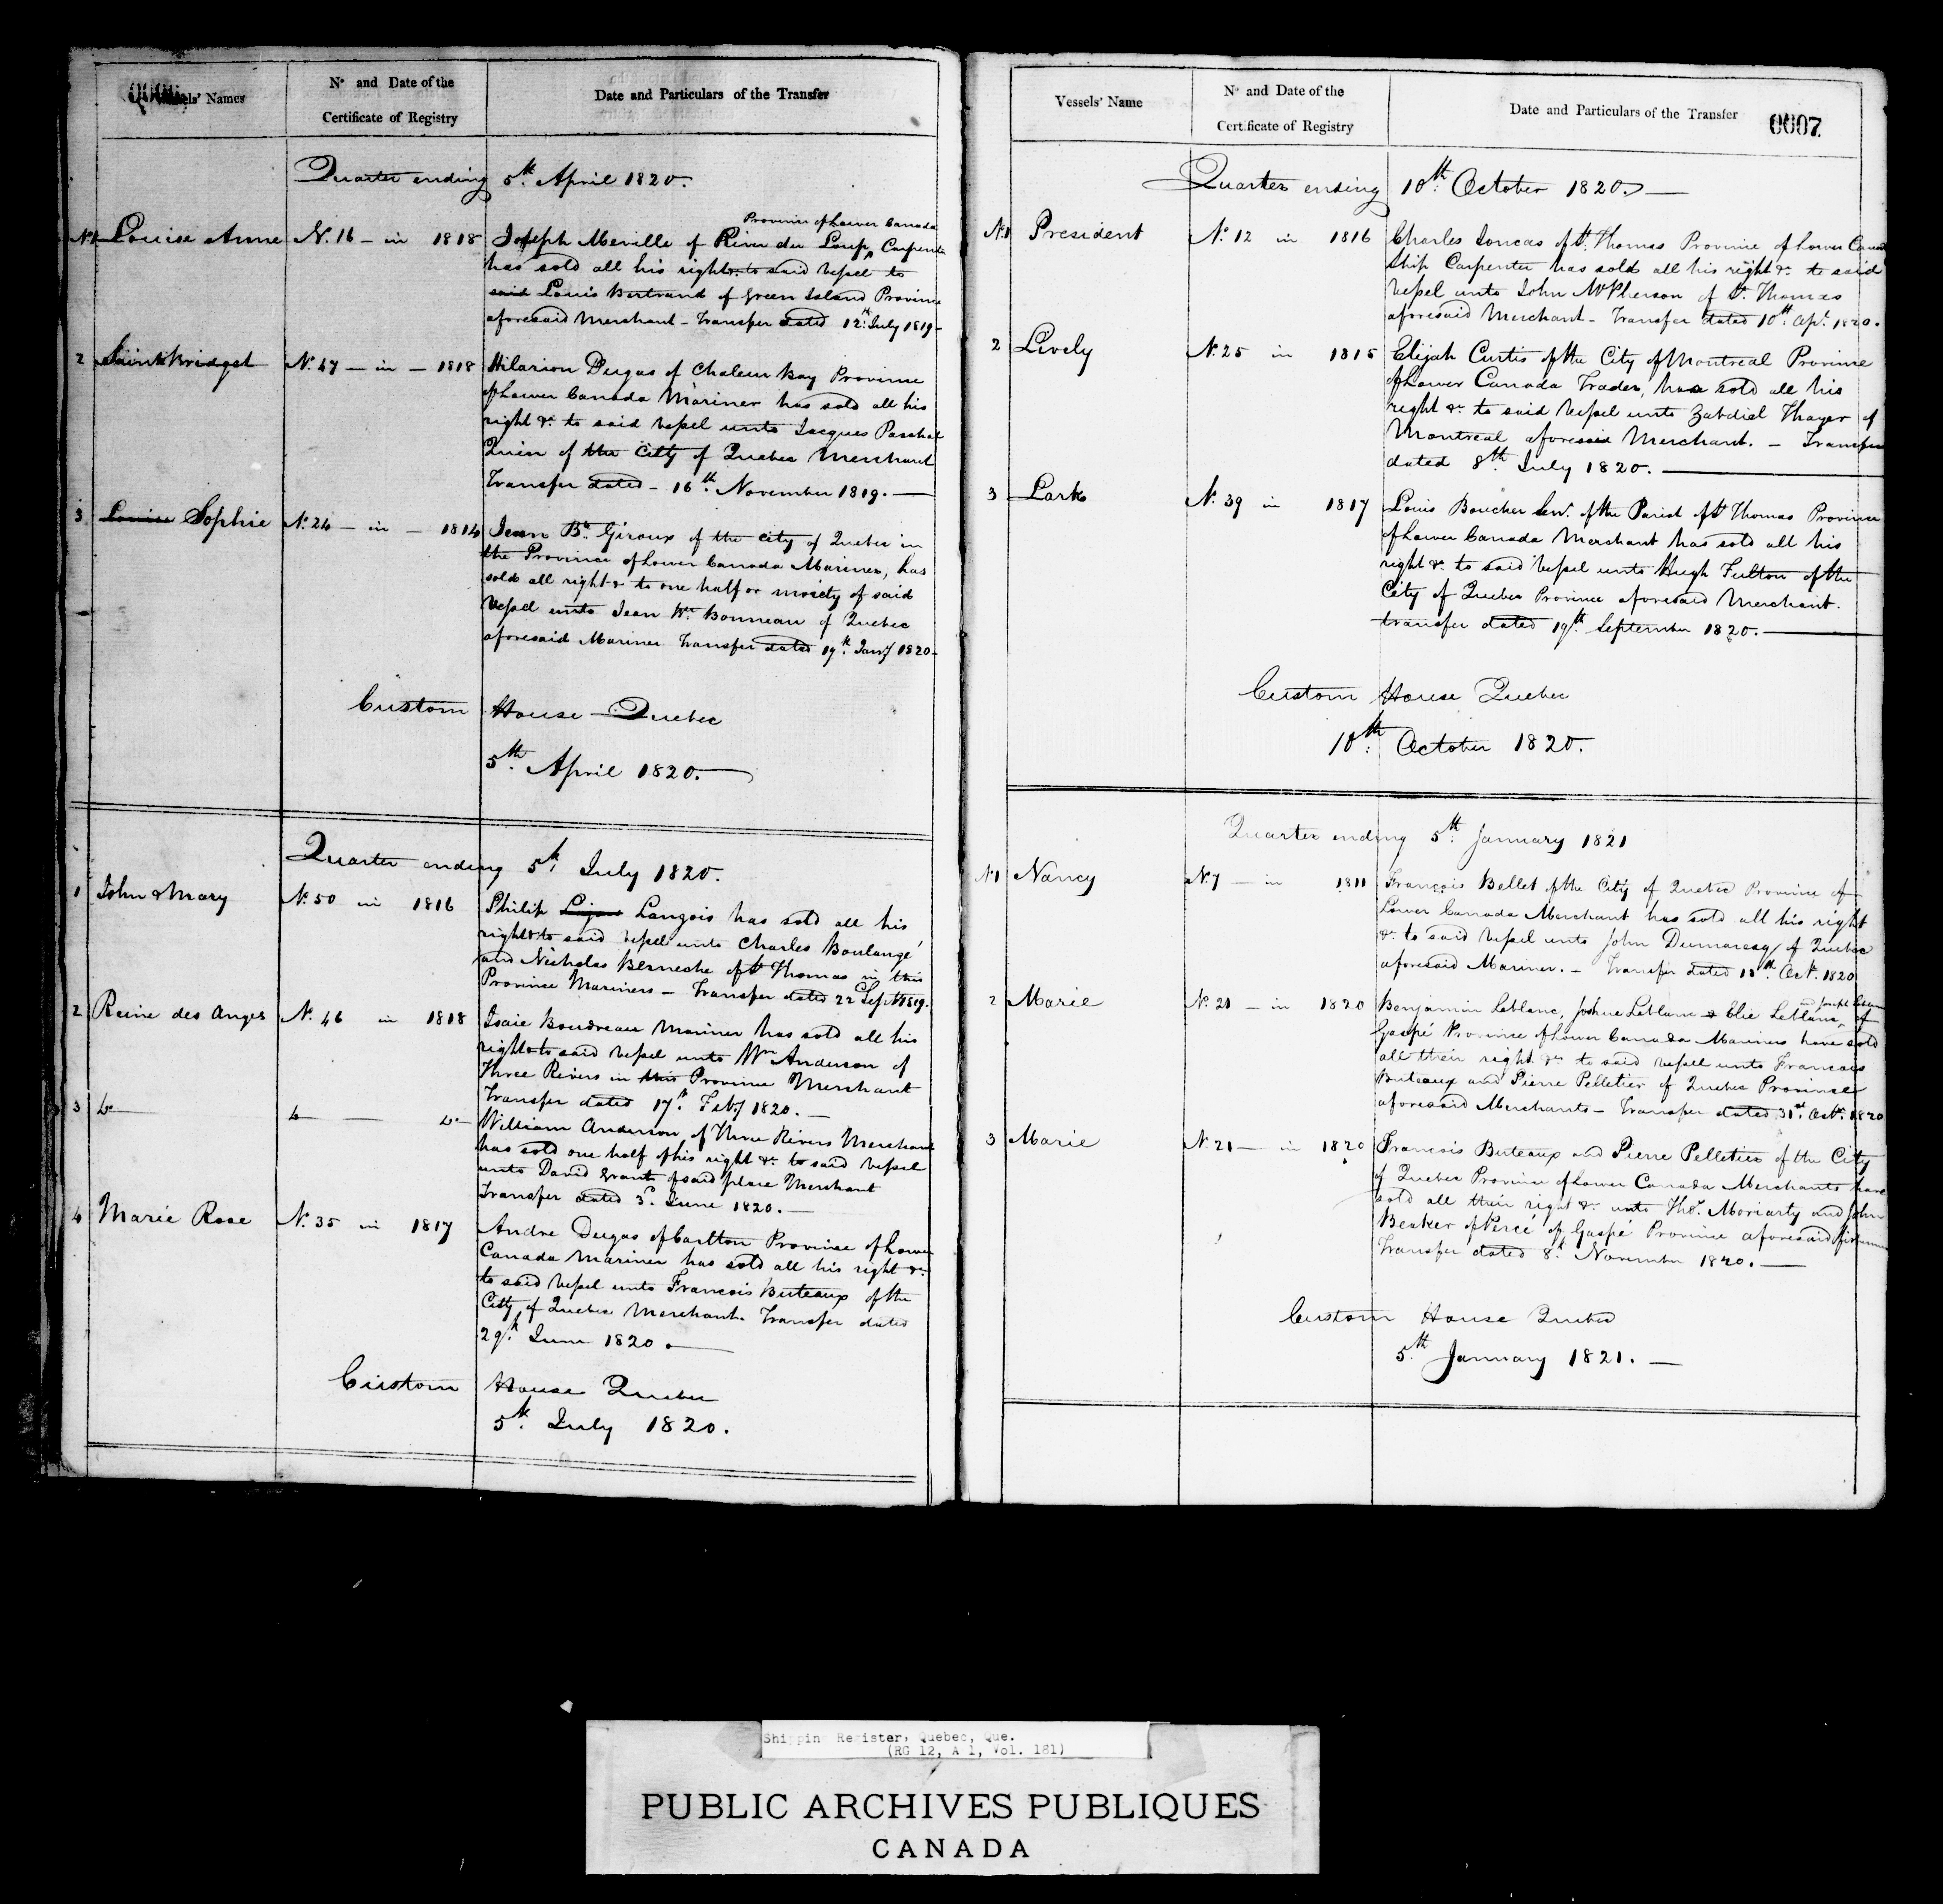 Vessels' Names
No and Date of the
Certificate of Registry
Date and Particulars of the Transfer
Quarter ending 5th April 1820.
No 1 Louise Anne No. 16 - in 1818 Joseph Meville of River du Loup, Province of Lower Canada Carpenter
has sold all his right &c to said Vessel to
said Louis Bertrand of Green Island Province
aforesaid Merchant - Transfer dated 12th July 1819 -
2 Saint Bridget No. 47 - in - 1818 Hilarion Dugas of Chaleur Bay Province
of Lower Canada Mariner has sold all his
right &c to said Vessel unto Jacques Paschal
of the City of Quebec Merchant
Transfer dated - 16th November 1819. -
3 Louise Sophie No. 24 - in - 1814 Jean Bte Giroux of the City of Quebec in
the Province of Lower Canada Mariner, has
sold all right &c to one half or moiety of said
Vessel unto Jean Bte Bonneau of Quebec
aforesaid Mariner Transfer dated 19th Jany 1820 -
Custom House - Quebec
5th April 1820.
Quarter ending 5th July 1820.
1 John & Mary No. 50 in 1816 Philip Langois has sold all his
right &c to said Vessel unto Charles Boulangé
and Nicholas Berneche of St Thomas in this
Province Mariners - Transfer dated 22d Septr 1819.
2 Reine des Anges No. 46 in 1818 Isaie Boudreau Mariner has sold all his
right &c to said Vessel unto Wm Anderson of
Three Rivers in this Province Merchant
Transfer dated 17th Feby 1820. -
3 Do Do Do William Anderson of Three Rivers Merchant
has sold one half of his right &c to said Vessel
unto David Grant of said place Merchant
Transfer dated 3d June 1820. -
4 Marie Rose No. 35 in 1817 Andre Dugas of Carlton Province of Lower
Canada Mariner has sold all his right &c
to said Vessel unto Francois Buteaux of the
City of Quebec Merchant. Transfer dated
29th June 1820.
Custom House Quebec
5th July 1820.
Vessels' Name
No and Date of the
Certificate of Registry
Date and Particulars of the Transfer
0007
Quarter ending 10th October 1820. -
No 1 President No. 12 in 1816 Charles Loncas of St. Thomas Province of Lower Canada
Ship Carpenter has sold all his right &c to said
Vessel unto John McPherson of St. Thomas
aforesaid Merchant - Transfer dated 10th Apl. 1820.
2 Lively No. 25 in 1815 Elijah Curtis of the City of Montreal Province
of Lower Canada Trader, has sold all his
right &c to said Vessel unto Zabdiel Thayer of
Montreal aforesaid Merchant. - Transfer
dated 8th July 1820. -
3 Lark No. 39 in 1817 Louis Boucher Senr. of the Parish of St Thomas Province
of Lower Canada Merchant has sold all his
right &c to said Vessel unto Hugh Fulton of the
City of Quebec Province aforesaid Merchant.
transfer dated 19th September 1820. -
Custom House Quebec
10th October 1820.
Quarter ending 5th January 1821
No 1 Nancy No. 7 - in 1811 François Bellet of the City of Quebec Province of
Lower Canada Merchant has sold all his right
&c to said Vessel unto John Dumaresq of Quebec
aforesaid Mariner. - Transfer dated 13th Octr. 1820
2 Marie No. 21 - in 1820 Benjamin Leblanc, Joshua Leblanc & Elie Leblanc, and Joseph Leblanc of
Gaspé Province of Lower Canada Mariners have sold
all their right &c to said vessel unto Francois
Buteaux and Pierre Pelletier of Quebec Province
aforesaid Merchants - Transfer dated 31st Octr. 1820
3 Marie No. 21 - in 1820 Francois Buteaux and Pierre Pelletier of the City
of Quebec Province of Lower Canada Merchants have
sold all their right &c unto Thos. Moriarty and John
Beaker of Percé of Gaspé Province aforesaid fishermen
Transfer dated 8th November 1820. -
Custom House Quebec
5th January 1821. -
Shipping Register, Quebec, Que.
(RG 12, A 1, Vol. 181)
PUBLIC ARCHIVES PUBLIQUES
CANADA